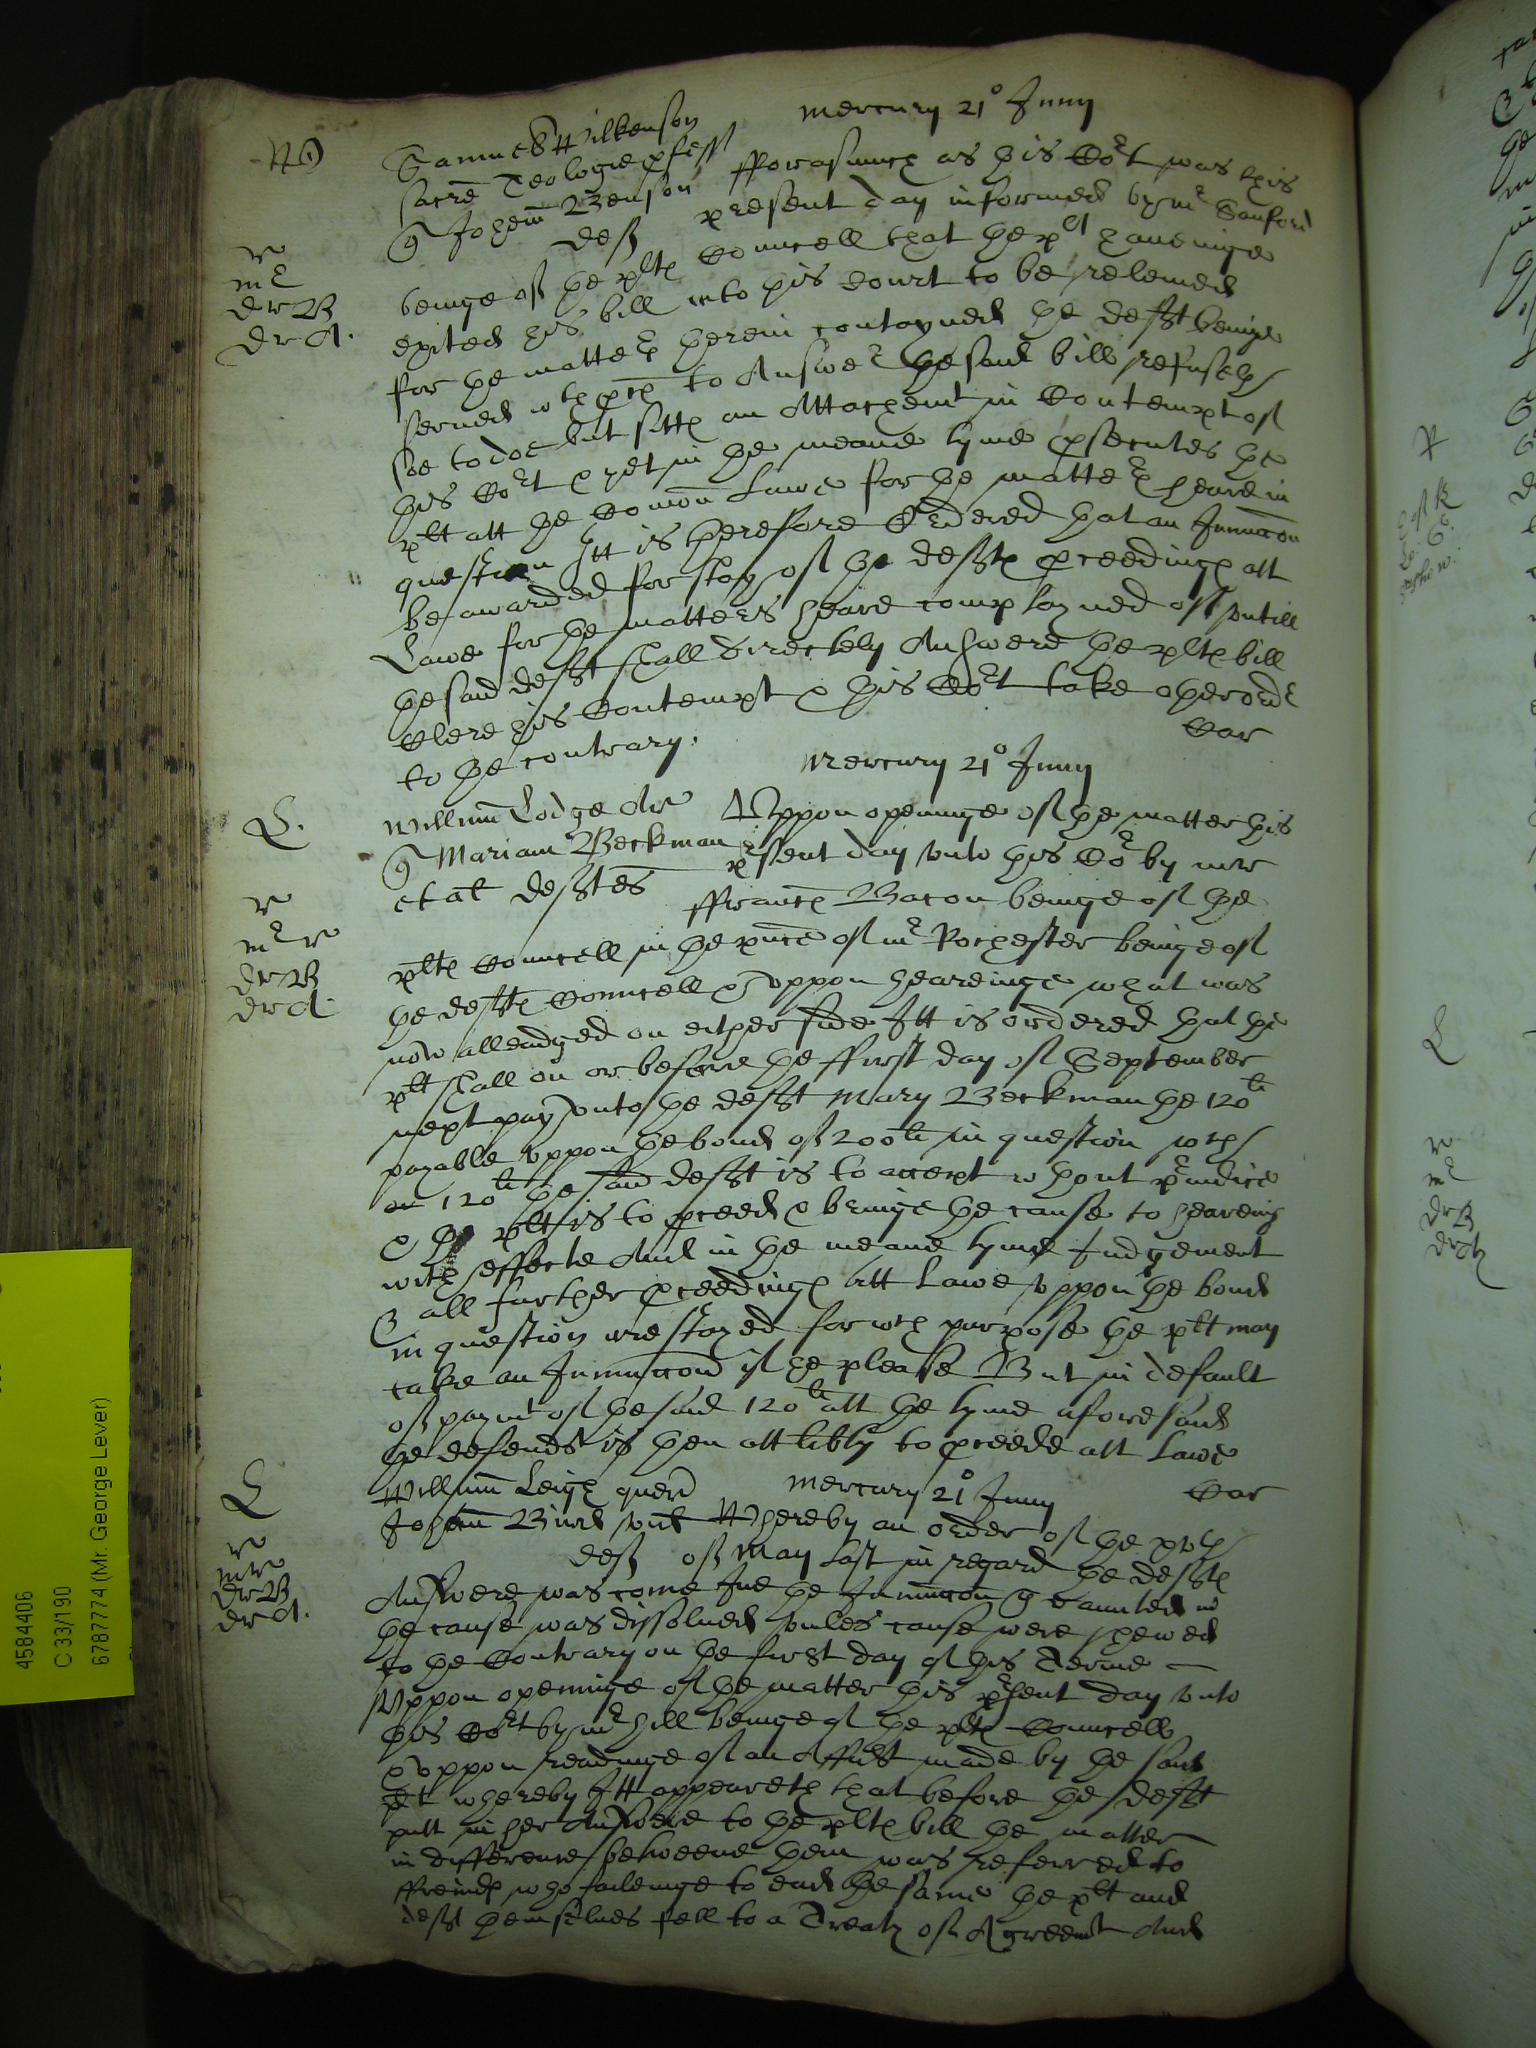 Mercurij 21º Junij
W
Samuel Wilkenson
sacre Teologie pfess
Forasmuch as this Cort was this
v Johem Benson
present day informed by mr Sanford
def
beinge of the plts Councell that the plt haveinge
exited his bill into this Court to be releived
for the matters therein contayned the defft beinge
served wth pces to Answer the said bill refuseth
soe to doe but sitts an Attachemt in Contempt of
this Cort & yet in the meane tyme psecutes the
plt att the Comon Lawe for the matters heare in
question Itt is therefore Ordered that an Iniunccon
be awarded for stay of the deffts pceedings att
Lawe for the matters heare complayned of untill
the said defft shall directely Answere the plts bill
clere his Contempt & this Cort take other ordr
to the contrary.
Car
Mercurij 21º Junij
L.
Willim Lodge Ar
Uppon openinge of the matter this
v Mariam Beckman
psent day unto this Cor by mr
et al deftes
ffrancs Bacon beinge of the
plts Councell in the pnce of mr Rochester beinge of
the deffts Councell & uppon heareinge what was
now alleadged on either side Itt is ordered that the
plt shall on or before the ffirst day of September
next pay unto the defft Mary Beckman the 120li
payable uppon the bond of 200li in question wch
120li the said defft is to accept wthout preiudice
& the plt is to pceed & bringe the cause to heareing
with effecte And in the meane tyme Judgement
& all further pceedings att Lawe uppon the bond
in question are stayed for wch purpose the plt may
take an Iniunccon if he please But in default
of paymt of the said 120li att the tyme aforesaid
the defendt is then att libty to pceede att Lawe
Car
L
Willim Leigh quer
Mercurij 21º Junij
Johem Bird
Whereby an order of the
def
of May last in regard the deffts
Answere was come Ine the Iniunccon graunted in
the cause was dissolved unles cause were shewed
to the Contrary on the first day of this Terme
Uppon openinge of the matter this psent day unto
this Cort by mr hill beinge of the plts Councell
& uppon readinge of an Affidt made by the said
plt whereby Itt appeareth that before the defft
putt in her Answere to the plts bill the matter
in difference betweene them was referred to
ffreinds who faileinge to end the same the plt and
defft themselves fell to a Treaty of Agreemt And
r
mr
dr B
dr A.
r
mr r
dr B
dr A
r
mr
dr B
dr A.
4584406
C 33/190
6787774 (Mr. George Lever)